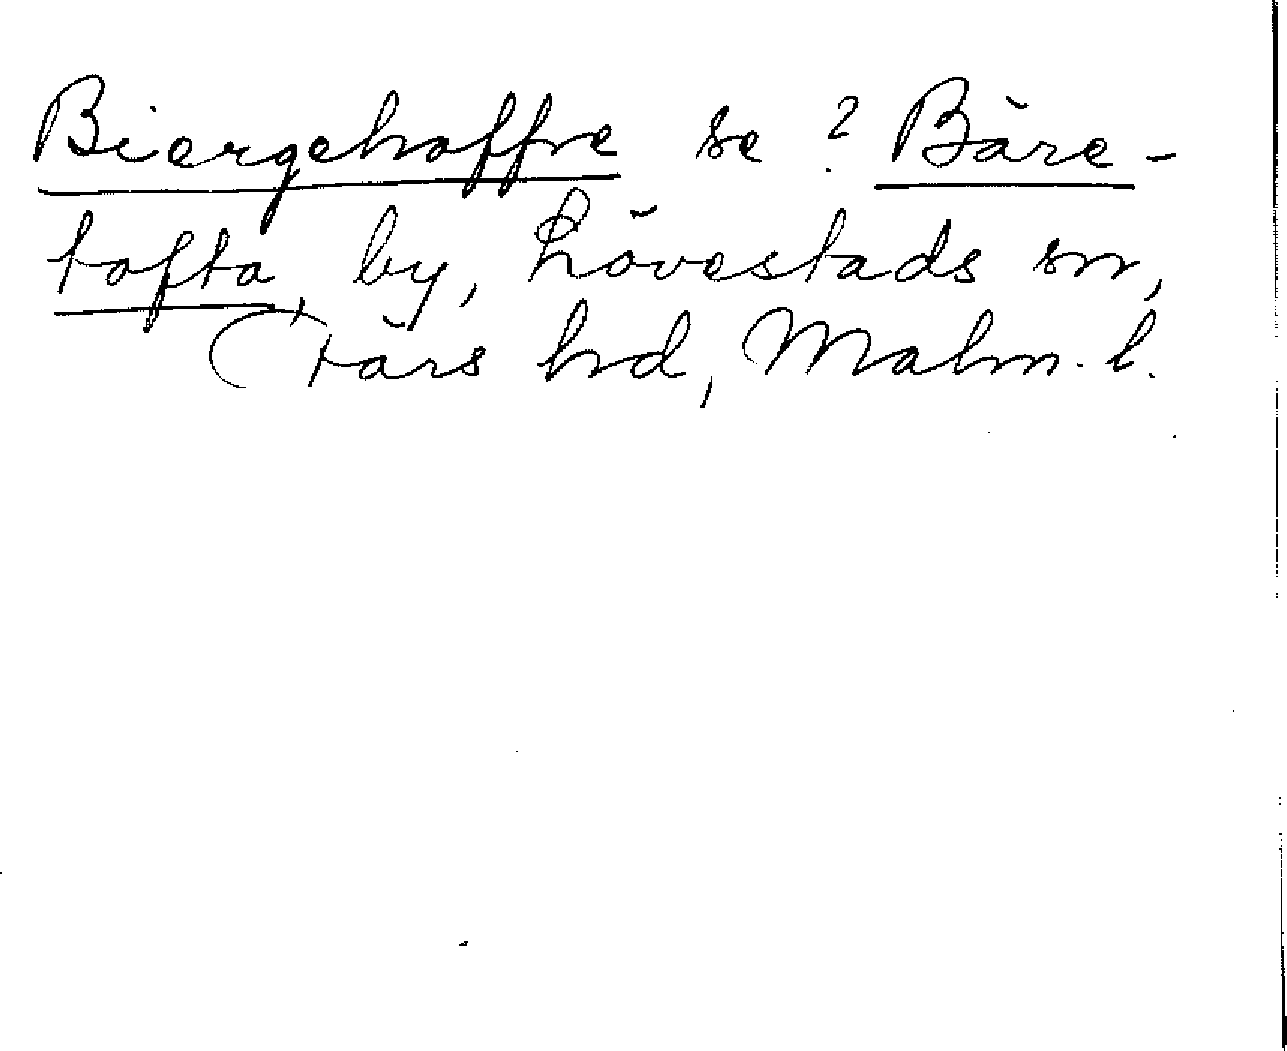 Biergehoffve se ? Bäre-
tofta, by, Lövestads sn,
Färs hd, Malm. l.